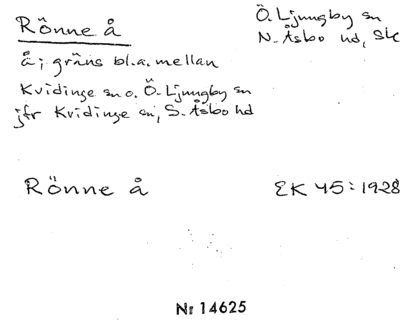 Rönne å
Ö. Ljungby sn
N. Åsbo hd, Sk
å; gräns bl.a. mellan
Kvidinge sn o. Ö. Ljungby sn
jfr Kvidinge sn, S. Åsbo hd
Rönne å
EK 45:1928
Nr 14625